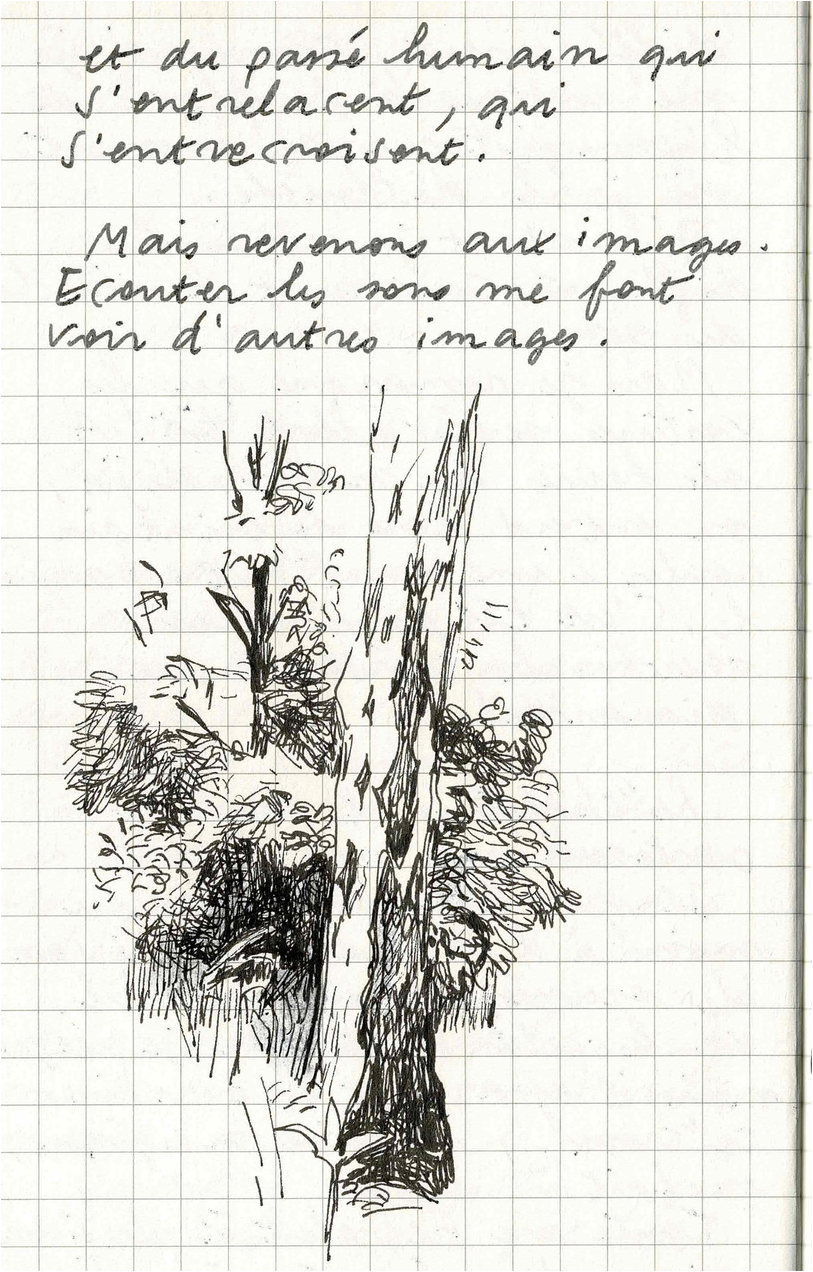 et du passé humain qui
s'entrelacent, qui
s'entrecroisent.
Mais revenons aux images.
Ecouter les sons me font
voir d'autres images.